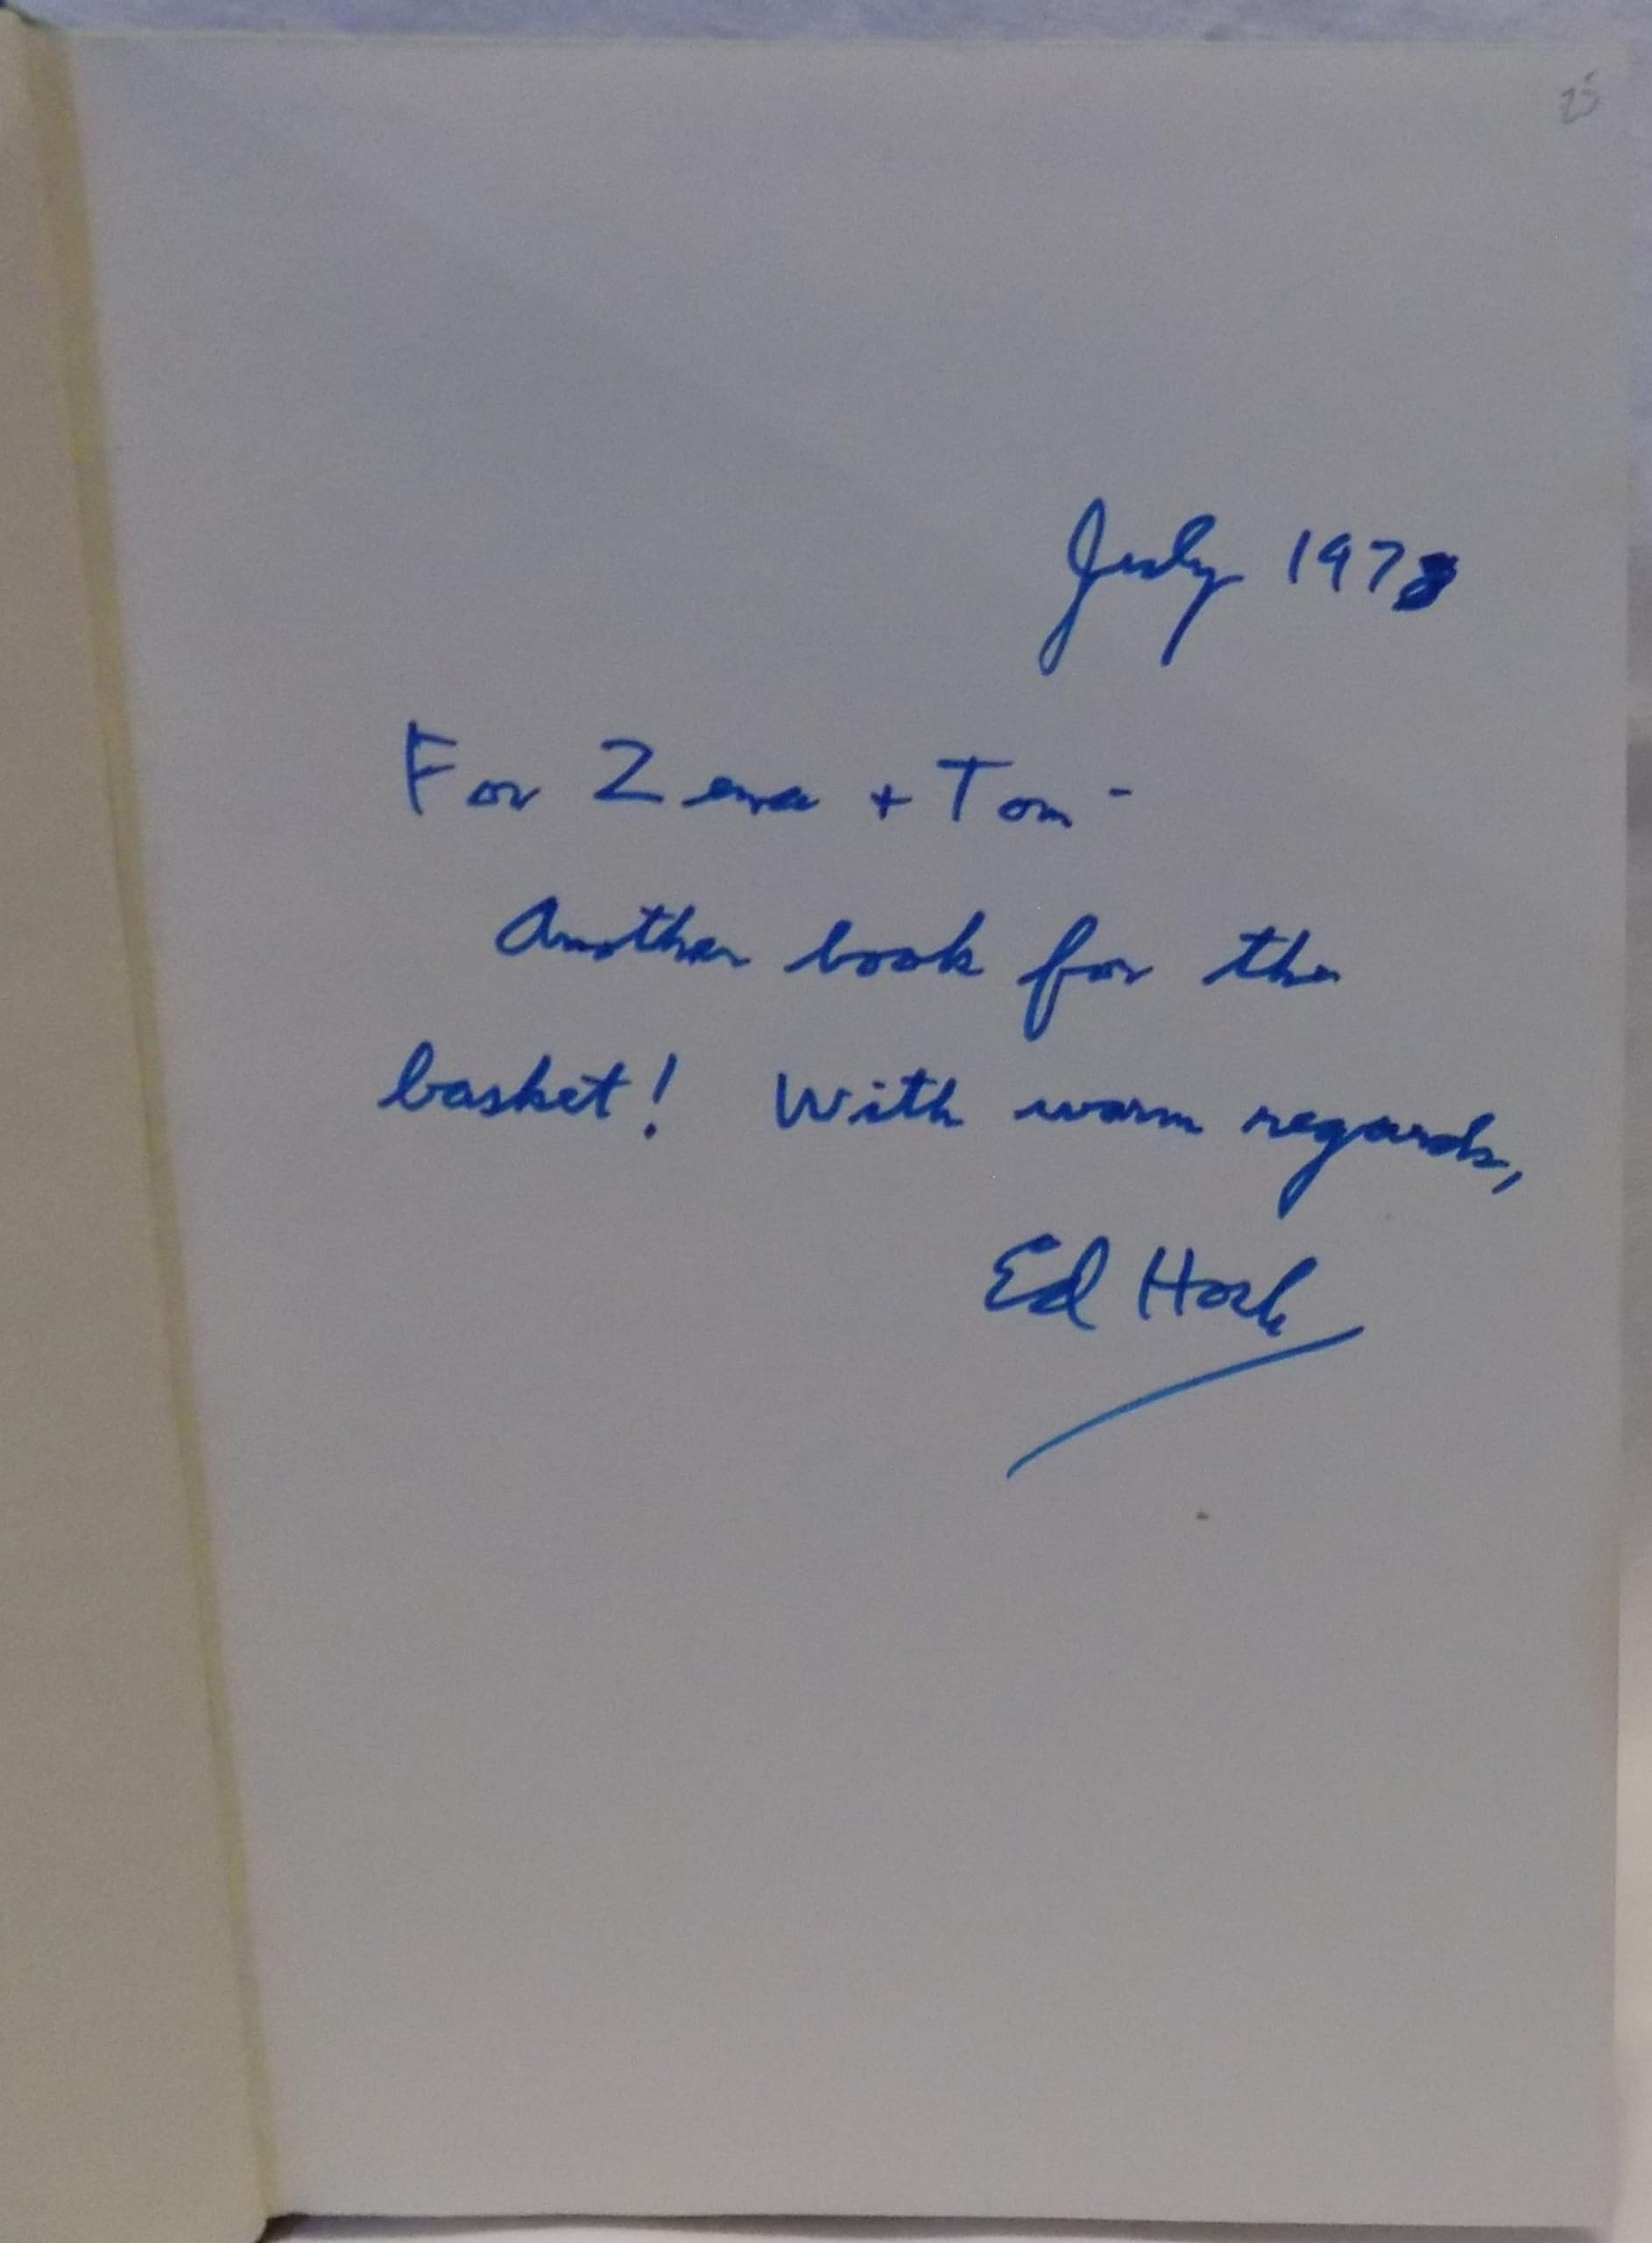 25
July 1978
For Zena + Tom -
Another book for the
basket! With warm regards,
Ed Hoch